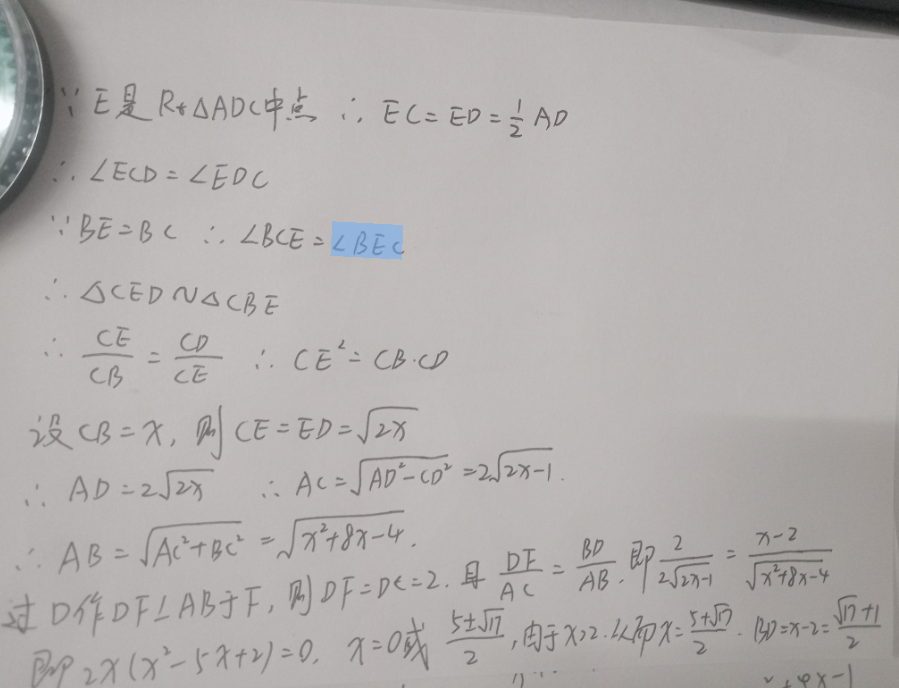 ∵E是Rt△ADC中点 ∴ EC=ED=1/2 AD
∴∠ECD=∠EDC
∵BE=BC ∴∠BCE=∠BEC
∴△CED∽△CBE
∴ CE/CB = CD/CE ∴ CE²=CB·CD
设CB=x, 则CE=ED=√(2x)
∴ AD=2√(2x) ∴ AC=√(AD²-CD²)=2√(2x-1).
∴ AB=√(AC²+BC²)=√(x²+8x-4).
过D作DF⊥AB于F, 则DF=DC=2. 且 DF/AC = BD/AB. 即 2/(2√(2x-1)) = (x-2)/√(x²+8x-4)
即2x(x²-5x+2)=0. x=0或 (5±√17)/2, 由于x>2. 从而x=(5+√17)/2. BD=x-2=(√17+1)/2